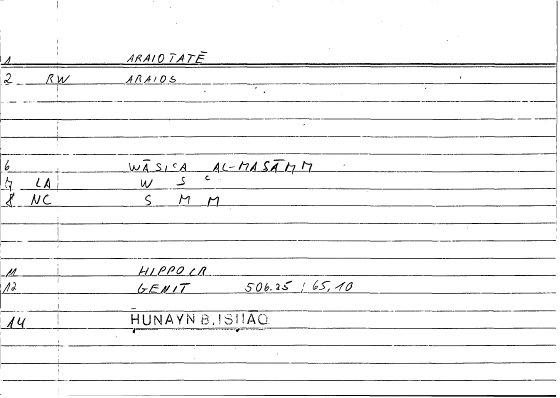 1 ARAIOTATĒ
2 RW ARAIOS
6 WĀSICA AL-MASĀMM
7 LA W S C
8 NC S M M
11 HIPPOCR
12 GENIT 506.25 ; 65,10
14 HUNAYN B. ISHĀQ